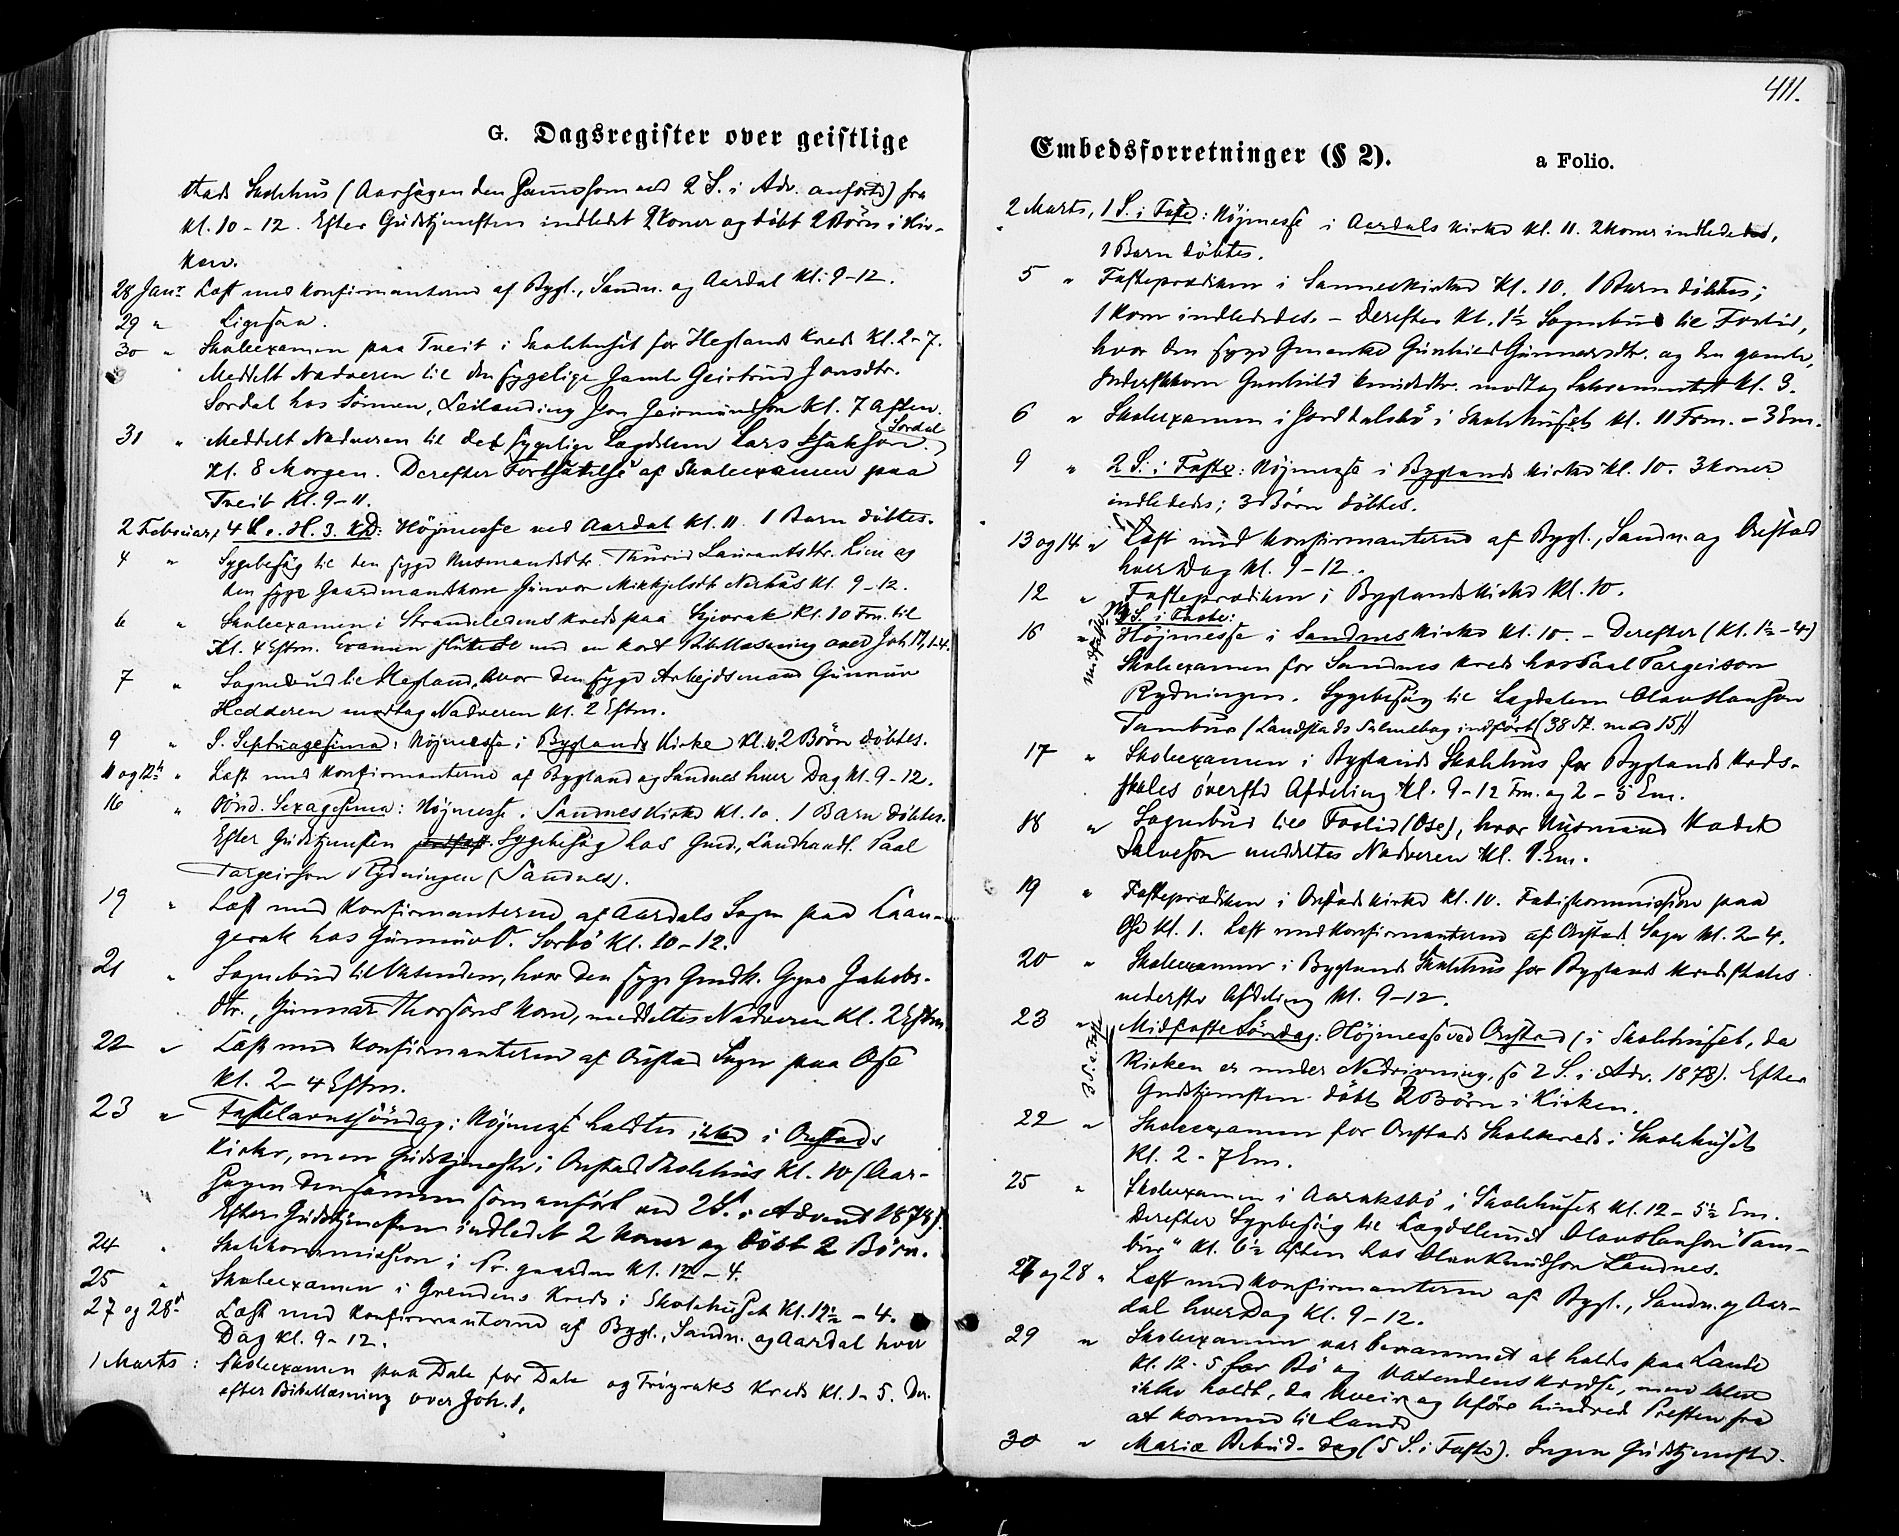 G. Dagsregister over geistlige
stads Skolehus (Aarsagen den samme som ved 2 S. i Adv. anförte) fra
Kl. 10-12. Efter Gudstjenesten indledet 2 Koner og döbt 2 Börn i Kir-
ken.
28 Janr Læst med Konfirmanterne af Bygl., Sandn. og Aardal Kl. 9-12.
29 " Ligesaa.
30 " Skoleexamen paa Tveit i Skolehuset for Heglands Kreds Kl. 2-7.
Meddelt Nadveren til den sygelige gamle Geirtrud Jonsdtr.
Sordal hos Sönnen, Leilænding Jon Geirmundson Kl. 7 Aften.
31 " Meddelt Nadveren til det sygelige Lægdslem Lars Isakson Sordal
Kl. 8 Morgen. Derefter Fortsættelse af Skoleexamen paa
Tveit Kl. 9-11.
2 Februar, 4 S. e. H. 3. K.: Höjmesse ved Aardal Kl. 11. 1 Barn döbtes.
4 " Sygebesög til den syge Husmandsdtr. Thurid Laurantsdtr. Lien og
den syge Gaardmandkone Gunvor Mikkjelsdt. Neshus Kl. 9-12.
6 " Skoleexamen i Strandledens Kreds paa Kl. 10 Fm. til
Kl. 4 Eftm. Examen sluttede med en kort Bibellæsning over Joh.
7 " Sognebud til Hegland, hvor den syge Arbejdsmand Gunnuv
Hedderen modtog Nadveren Kl. 2 Eftm.
9 " S. Septuagesima: Höjmesse i Byglands Kirke Kl. 10 2 Börn döbtes.
11 og 12te " Læst med Konfirmanterne af Bygland og Sandnes hver Dag Kl. 9-12.
16 " Sönd. Sexagesima: Höjmesse i Sandnes Kirke Kl. 10. 1 Barn döbtes.
Efter Gudstjenesten Sygebesög hos Gmd., Landhandl. Paal
Targeirson Rydningen (Sandnes).
19 " Læst med Konfirmanterne af Aardals Sogn paa Laan-
gerak hos Gunnuv O. Sorbö Kl. 10-12.
21 " Sognebud til Vasenden, hvor den syge Gmdk. Gyro Jakobs-
dtr., Gunnar Thorsons Kone, meddeltes Nadveren Kl. 2 Eftm.
22 " Læst med Konfirmanterne af Oustad Sogn paa Ose
Kl. 2-4 Eftm.
23 " Fastelavnssöndag: Höjmesse holdtes ikke i Oustads
Kirke, men Gudstjeneste i Oustad Skolehus Kl. 10 (Aar-
sagen den samme som anfört ved 2 S. i Advent 1878).
Efter Gudstjenesten indledet 2 Koner og döbt 2 Börn.
24 " Skolekommission i Pr.gaarden Kl. 12-4.
25 " Skoleexamen i Grendens Kreds i Skolehuset Kl. 12½-4.
27 og 28de Læst med Konfirmanterne af Bygl., Sandn. og Aardal hver
Dag Kl. 9-12.
1 Marts: Skoleexamen paa Dale for Dale og Frøyraks Kreds Kl. 1-5. Der-
efter Bibellæsning over Joh. 1,
411.
Embedsforretninger (§ 2). a Folio.
2 Marts, 1 S. i Faste: Höjmesse i Aardals Kirke Kl. 11. 2 Koner indlededes,
1 Barn döbtes.
5 " Fasteprædiken i Sandnes Kirke Kl. 10. 1 Barn döbtes;
1 Kone indlededes. - Derefter Kl. 1½ Sognebud til Froslid,
hvor den syge Gmenke Gunhild Gunnarsdtr. og den gamle
Inderstkone Gunhild Knudsdtr. modtog Sakramentet Kl. 3.
6 " Skoleexamen i Jorddalsbö i Skolehuset Kl. 11 Form. - 3 Em.
9 " 2 S. i Faste: Höjmesse i Byglands Kirke Kl. 10. 3 Koner
indlededes; 3 Börn döbtes.
13 og 14 " Læst med Konfirmanterne af Bygl., Sandn. og Oustad
hver Dag Kl. 9-12.
12 " Fasteprædiken i Byglands Kirke Kl. 10.
S. i Faste:
16 " Höjmesse i Sandnes Kirke Kl. 10. - Derefter (Kl. 1½-4)
Skoleexamen for Sandnes Kreds hos Paal Targeirson
Rydningen. Sygebesög til Lægdslem Olav Hanson
Tambur (Landstads Salmebog indfört (38 St. mod 15))
17 " Skoleexamen i Byglands Skolehus for Byglands Kreds-
skoles överste Afdeling Kl. 9-12 Fm. og 2-5 Em.
18 " Sognebud til Froslid (Ose), hvor Husmand Kadet
Salveson meddeltes Nadveren Kl. 1 Em.
19 " Fasteprædiken i Oustads Kirke Kl. 10. Fattigkommission paa
Ose Kl. 1. Læst med Konfirmanterne af Oustad Sogn Kl. 2-4.
20 " Skoleexamen i Byglands Skolehus for Byglands Kredsskoles
nederste Afdeling Kl. 9-12.
23 " Midfaste Söndag: Höjmesse ved Oustad (i Skolehuset, da
Kirken er under Nedrivning, se 2 S. i Adv. 1878). Efter
Gudstjenesten döbt 2 Börn i Kirken.
3 S. i Faste
22 " Skoleexamen for Oustads Skolekreds i Skolehuset
Kl. 2-7 Em.
25 " Skoleexamen i Aaraksbö i Skolehuset Kl. 12-5½ Em.
Derefter Sygebesög til Lægdslemet Olav Hanson "Tam-
bur" Kl. 6½ Aften hos Olav Knudson Sandnes.
27 og 28 " Læst med Konfirmanterne af Bygl., Sandn. og Aar-
dal hver Dag Kl. 9-12.
29 " Skoleexamen var berammet at holdes paa Lande
Kl. 12-5 for Bö og Vasendens Kredse, men blev
ikke holdt, da Uveir og Uföre hindrede Presten fra
at komme til Lande
30 " Mariæ Bebud. Dag (5 S. i Faste). Ingen Gudstjeneste.